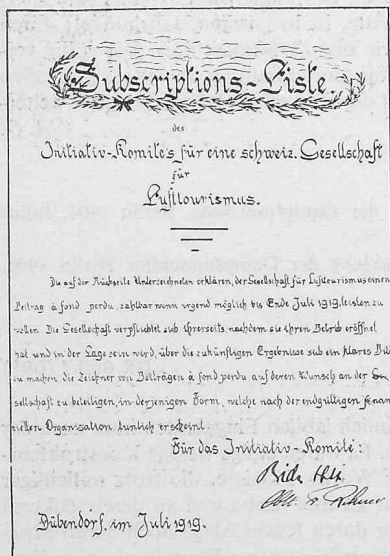 Subscriptions-Liste.
des
Initiativ-Komite's für eine schweiz. Gesellschaft
für
Lufttourismus.
Die auf der Rückseite Unterzeichneten erklären, der Gesellschaft für Lufttourismus einen
Beitrag à fond perdu, zahlbar wenn irgend möglich bis Ende Juli 1919, leisten zu
wollen. Die Gesellschaft verpflichtet sich ihrerseits, nachdem sie ihren Betrieb eröffnet
hat und in der Lage sein wird, über die zukünftigen Ergebnisse sich ein klares Bild
zu machen die Zeichner von Beiträgen à fond perdu auf deren Wunsch an der Ge-
sellschaft zu beteiligen, in derjenigen Form, welche nach der endgültigen finan-
ziellen Organisation tunlich erscheint.
Für das Initiativ-Komite:
Dübendorf, im Juli 1919.